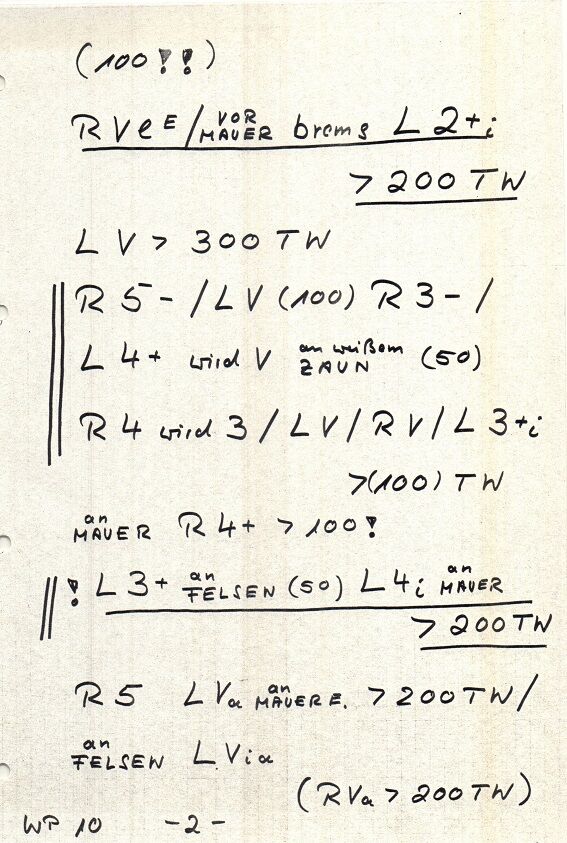 (100!!)
RVeE/VOR MAUER brems L2+i
> 200 TW
LV > 300 TW
R5-/LV(100) R3-/
L4+ wird V an weißem ZAUN (50)
R4 wird 3/LV/RV/L3+i
>(100) TW
an MAUER R4+ > 100!
! L3+ an FELSEN (50) L4i an MAUER
> 200 TW
R5 LVa an MAUER E. > 200 TW/
an FELSEN LVia
(RVa > 200 TW)
WP 10 -2-